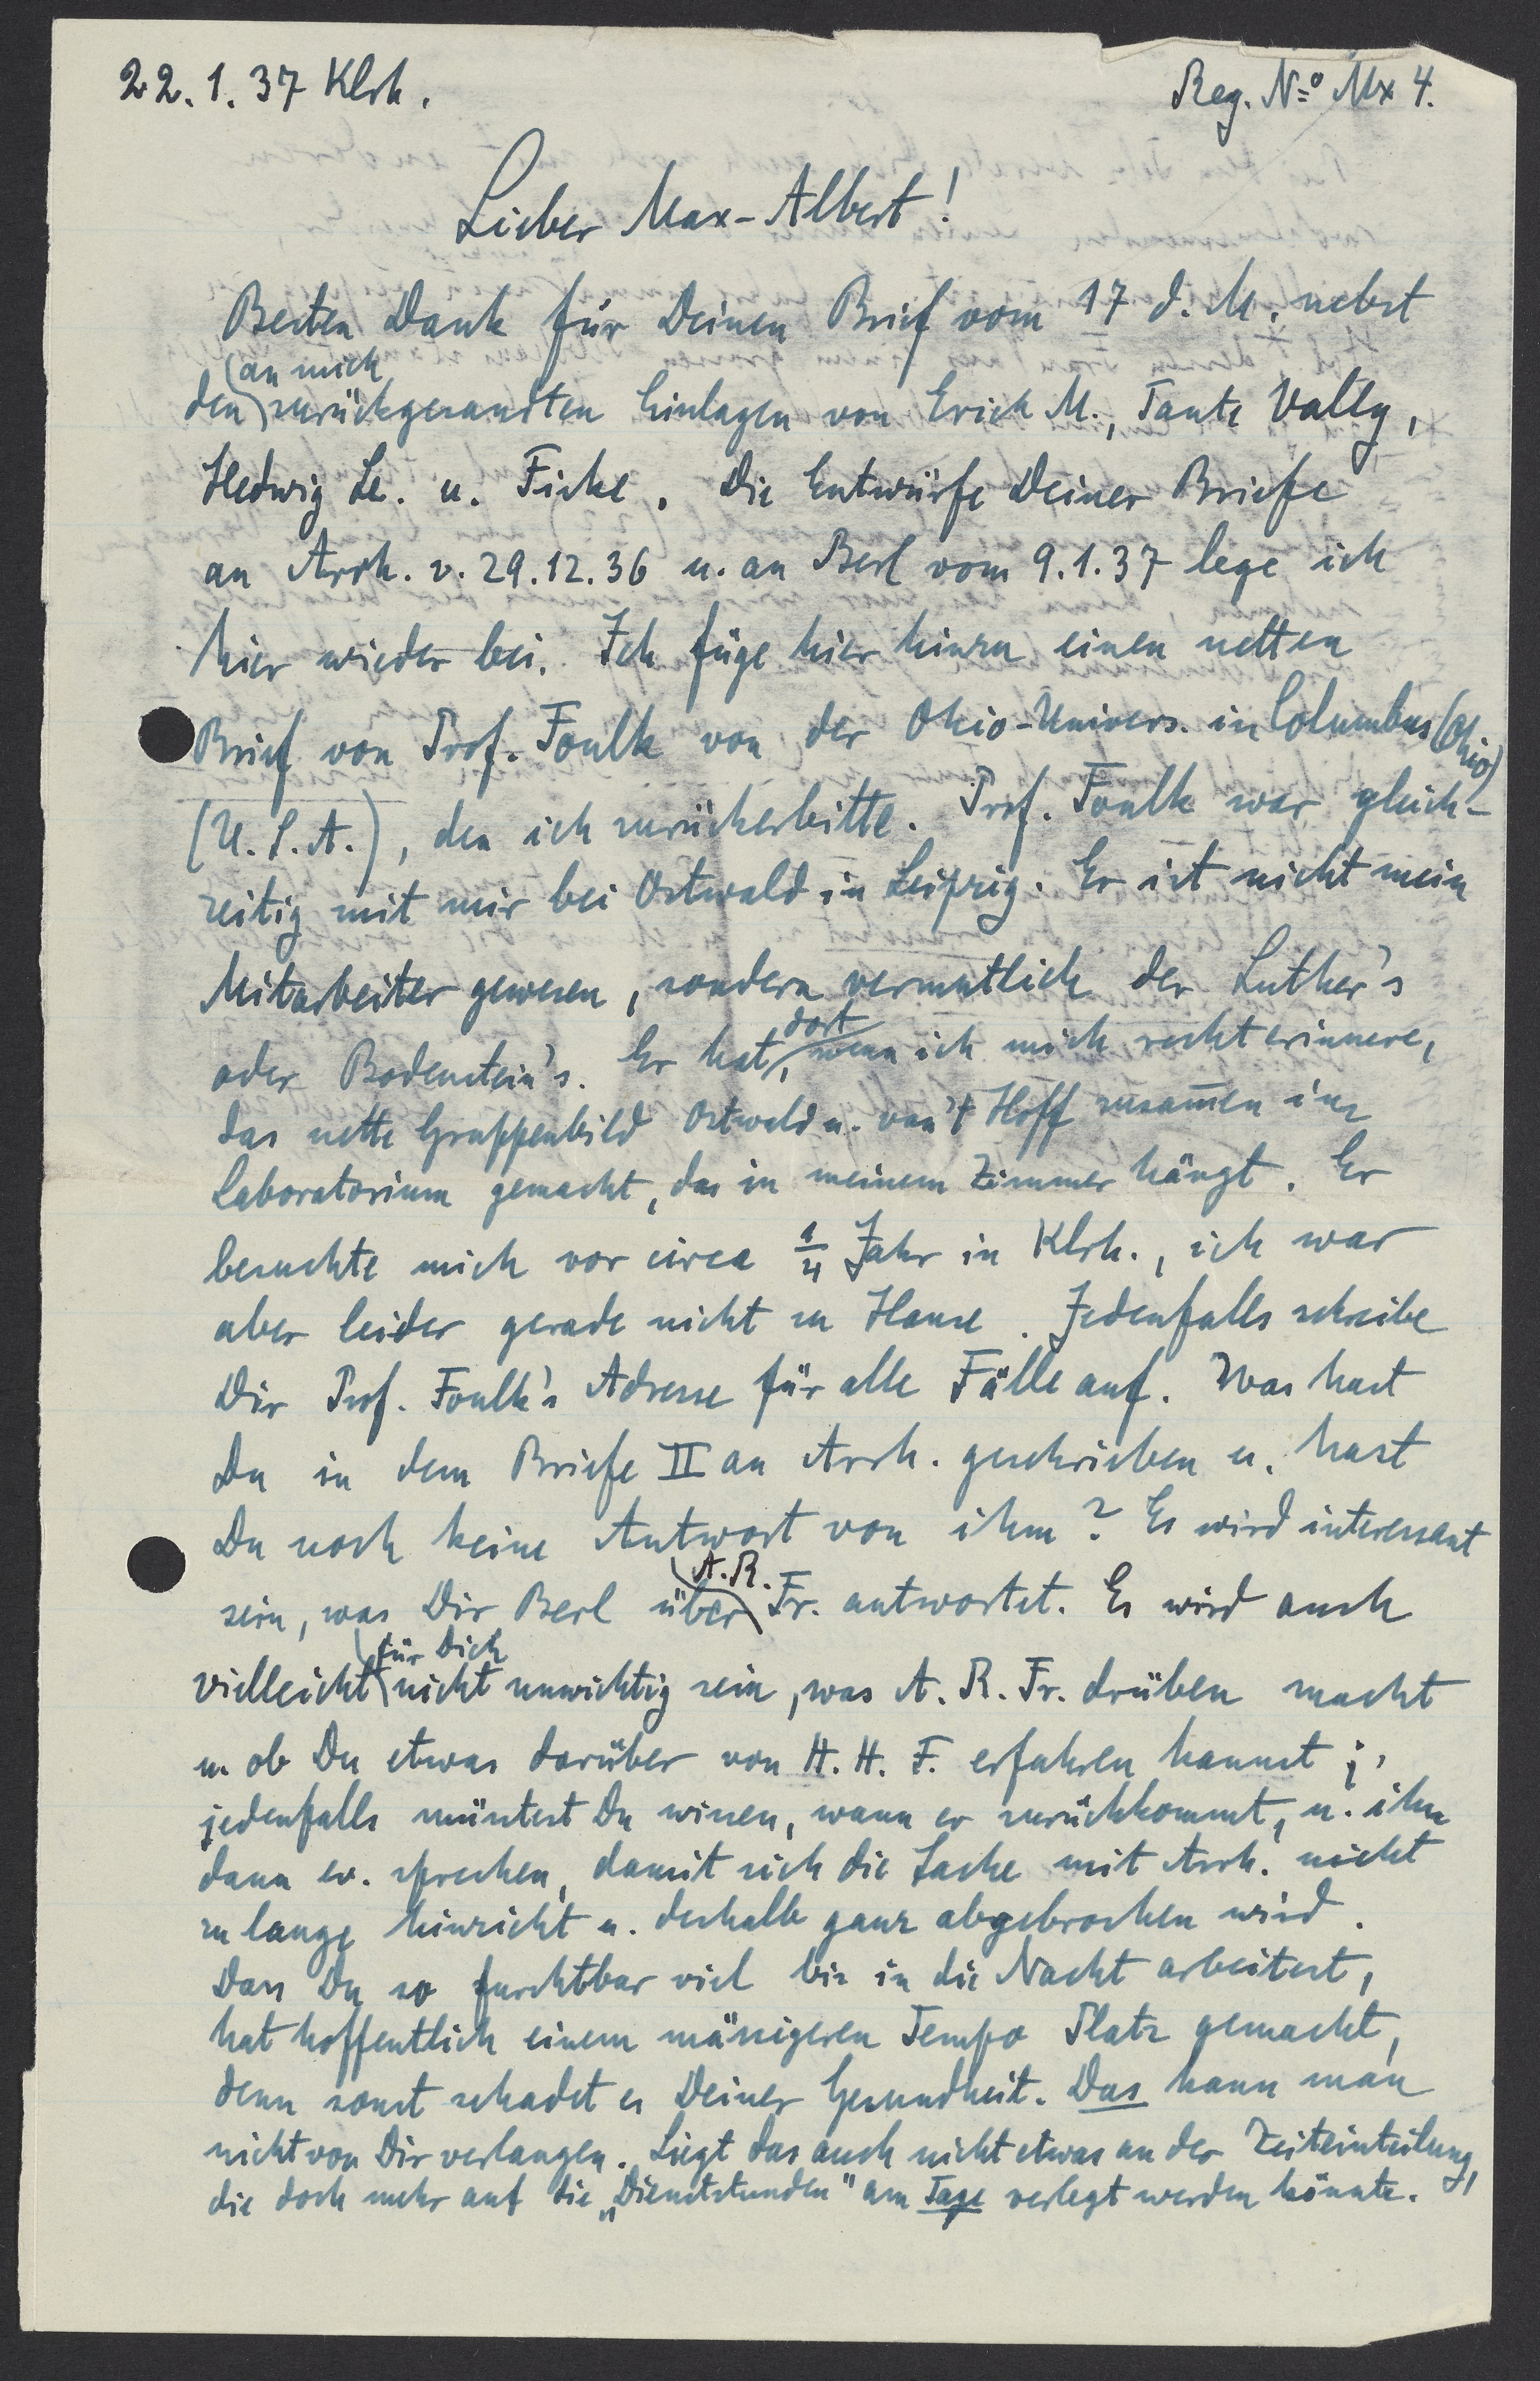 22.1.37 Klrh.
Reg. No Mx 4.
Lieber Max-Albert!
Besten Dank für Deinen Brief vom 17 d. M. nebst
den (an mich) zurückgesandten Einlagen von Erich M., Tante Vally,
Hedwig Le. u. Ficke. Die Entwürfe Deiner Briefe
an Arrh. v. 29.12.36 u. an Berl vom 9.1.37 lege ich
hier wieder bei. Ich füge hier hinzu einen netten
Brief von Prof. Foulk von der Ohio-Univers. in Columbus (Ohio)
(U.S.A.), den ich zurückerbitte. Prof. Foulk war gleich-
zeitig mit mir bei Ostwald in Leipzig. Er ist nicht mein
Mitarbeiter gewesen, sondern vermutlich der Luther's
oder Bodenstein's. Er hat dort, wenn ich mich recht erinnere,
das nette Gruppenbild Ostwald u. van't Hoff zusam̄en im
Laboratorium gemacht, das in meinem Zimmer hängt. Er
besuchte mich vor circa 1/4 Jahr in Klrh., ich war
aber leider gerade nicht zu Hause. Jedenfalls schreibe
Dir Prof. Foulk's Adresse für alle Fälle auf. Was hast
Du in dem Briefe II an Arrh. geschrieben u. hast
Du noch keine Antwort von ihm? Es wird interessant
sein, was Dir Berl über A.R. Fr. antwortet. Es wird auch
vielleicht für Dich nicht unwichtig sein, was A. R. Fr. drüben macht
u. ob Du etwas darüber von H. H. F. erfahren kannst;
jedenfalls müsstest Du wissen, wann er zurückkommt, u. ihn
dann ev. sprechen, damit sich die Sache mit Arrh. nicht
zu lange hinzieht u. deshalb ganz abgebrochen wird.
Dass Du so furchtbar viel bis in die Nacht arbeitest,
hat hoffentlich einem mässigeren Tempo Platz gemacht,
denn sonst schadet es Deiner Gesundheit. Das kann man
nicht von Dir verlangen. Liegt das auch nicht etwas an der Zeiteinteilung,
die doch mehr auf die „Dienststunden" am Tage verlegt werden könnte.